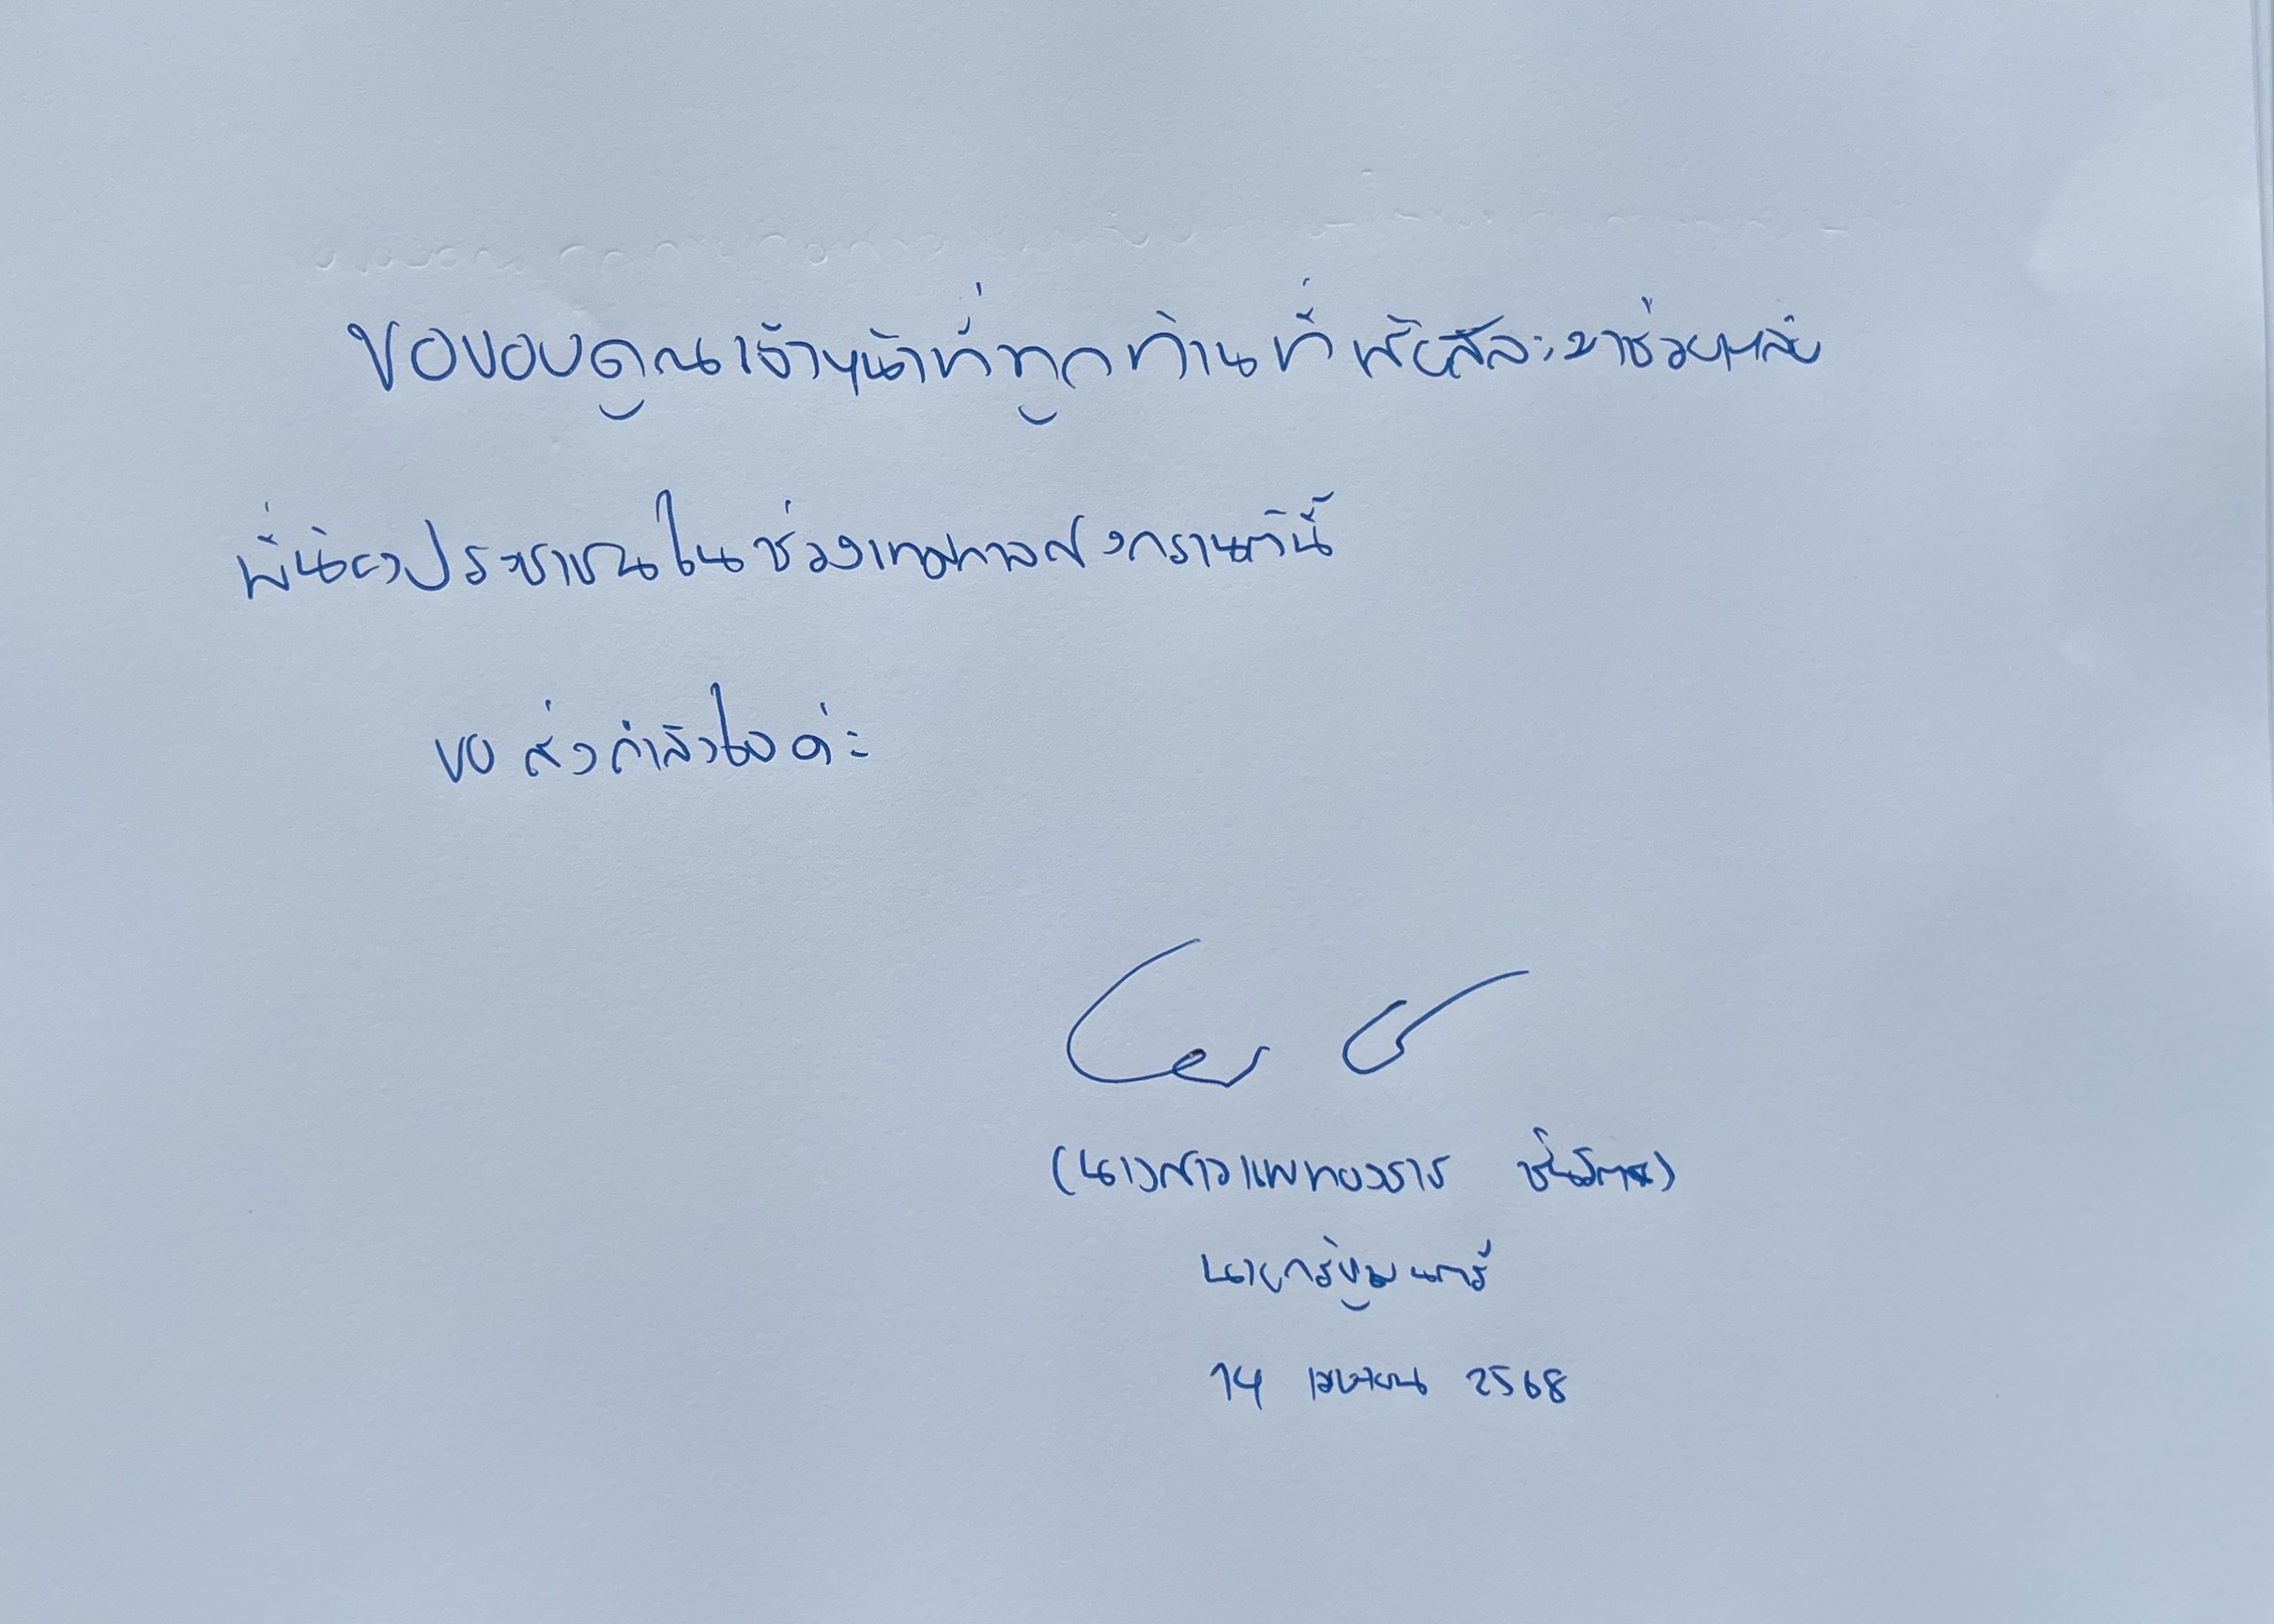 ขอขอบคุณเจ้าหน้าที่ทุกท่านที่เสียสละมาช่วยเหลือ
พี่น้องประชาชนในช่วงเทศกาลสงกรานต์นี้
ขอส่งกำลังใจค่ะ
(นางสาวแพทองธาร ชินวัตร)
นายกรัฐมนตรี
14 เมษายน 2568